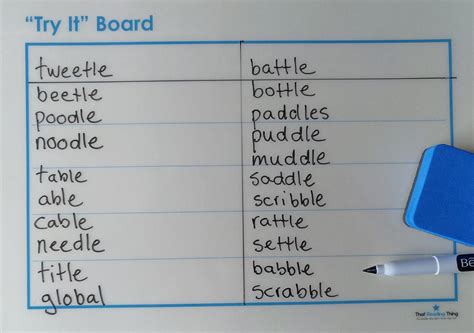 “Try It” Board
tweetle battle
beetle bottle
poodle paddles
noodle puddle
muddle
table saddle
able scribble
cable rattle
needle settle
title babble
global scrabble
Be
That Reading Thing